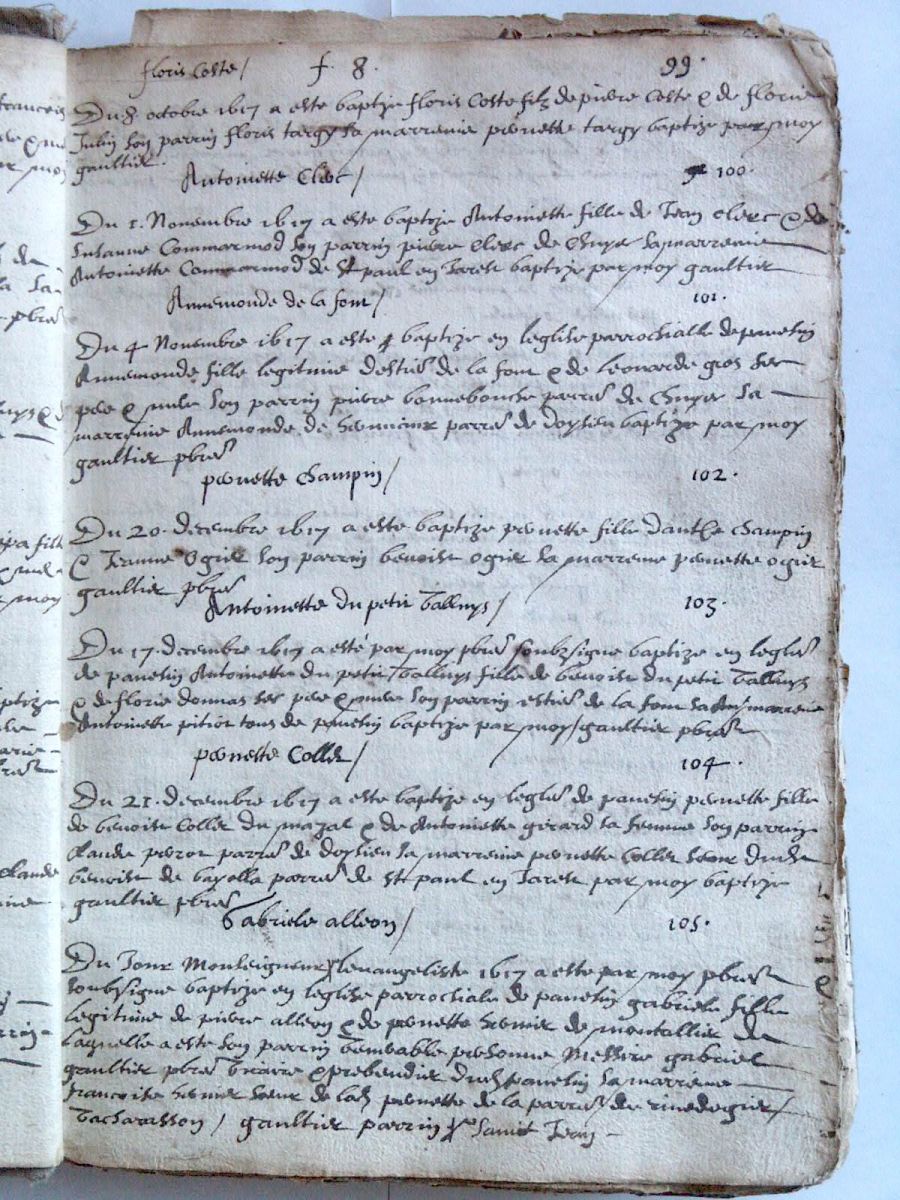 floris Coste / f. 8. 99.
Du 8 octobre 1617 a este baptize floris Coste filz de pierre Coste & de florie
Julin son parrin floris targy sa marreine pernette targy baptize par moy
gaultier.
Antoinette Clerc / 100.
Du 1. Novembre 1617 a este baptize Antoinette fille de Jean Clerc & de
Susanne Commarmod son parrin pierre Clerc de Chuyer sa marreine
Antoinette Commarmod de St paul en Jarest baptize par moy gaultier
Annemonde de la font / 101.
Du 4 Novembre 1617 a este baptize en leglise parrochialle de pauesin
Annemonde fille legitime destiene de la font & de Leonarde gros ses
pere & mere son parrin pierre bonnebouche parre de Chuyer sa
marreine Annemonde de parre de doysieu baptize par moy
gaultier pbre
pernette Champin / 102.
Du 20. decembre 1617 a este baptize pernette fille danthe Champin
& Jeanne Ogier son parrin benoist ogier sa marreine pernette ogier
gaultier pbre
Antoinette du petit Talluys / 103.
Du 17. decembre 1617 a esté par moy pbre soubzsigne baptize en leglise
de pauesin Antoinette du petit Talluys fille de benoist du petit Talluys
& de florie donnas ses pere & mere son parrin estiene de la font sa marreine
Antoinette pitiot tous de pauesin baptize par moy / gaultier pbre
pernette Collet / 104.
Du 21. decembre 1617 a este baptize en leglise de pauesin pernette fille
de benoist Collet du mazal & de Antoinette girard sa femme son parrin
Claude perrot parre de doysieu sa marreine pernette Collet soeur dudt
benoist de bayolla parre de St paul en Jarest par moy baptize
gaultier pbre
Gabriele alleon / 105.
Du Jour Monseigneur levangeliste 1617 a este par moy pbre
soubsigne baptize en leglize parrochiale de pauesin gabriele fille
legitime de pierre alleon & de pernette de montallier de
laquelle a este son parrin venerable personne Messire gabriel
gaultier pbre vicaire & prebendier dudt pauesin sa marreine
francoise soeur de lad pernette de la parre de rivedegier /
Tacharasson / gaultier parrin Sainct Jean